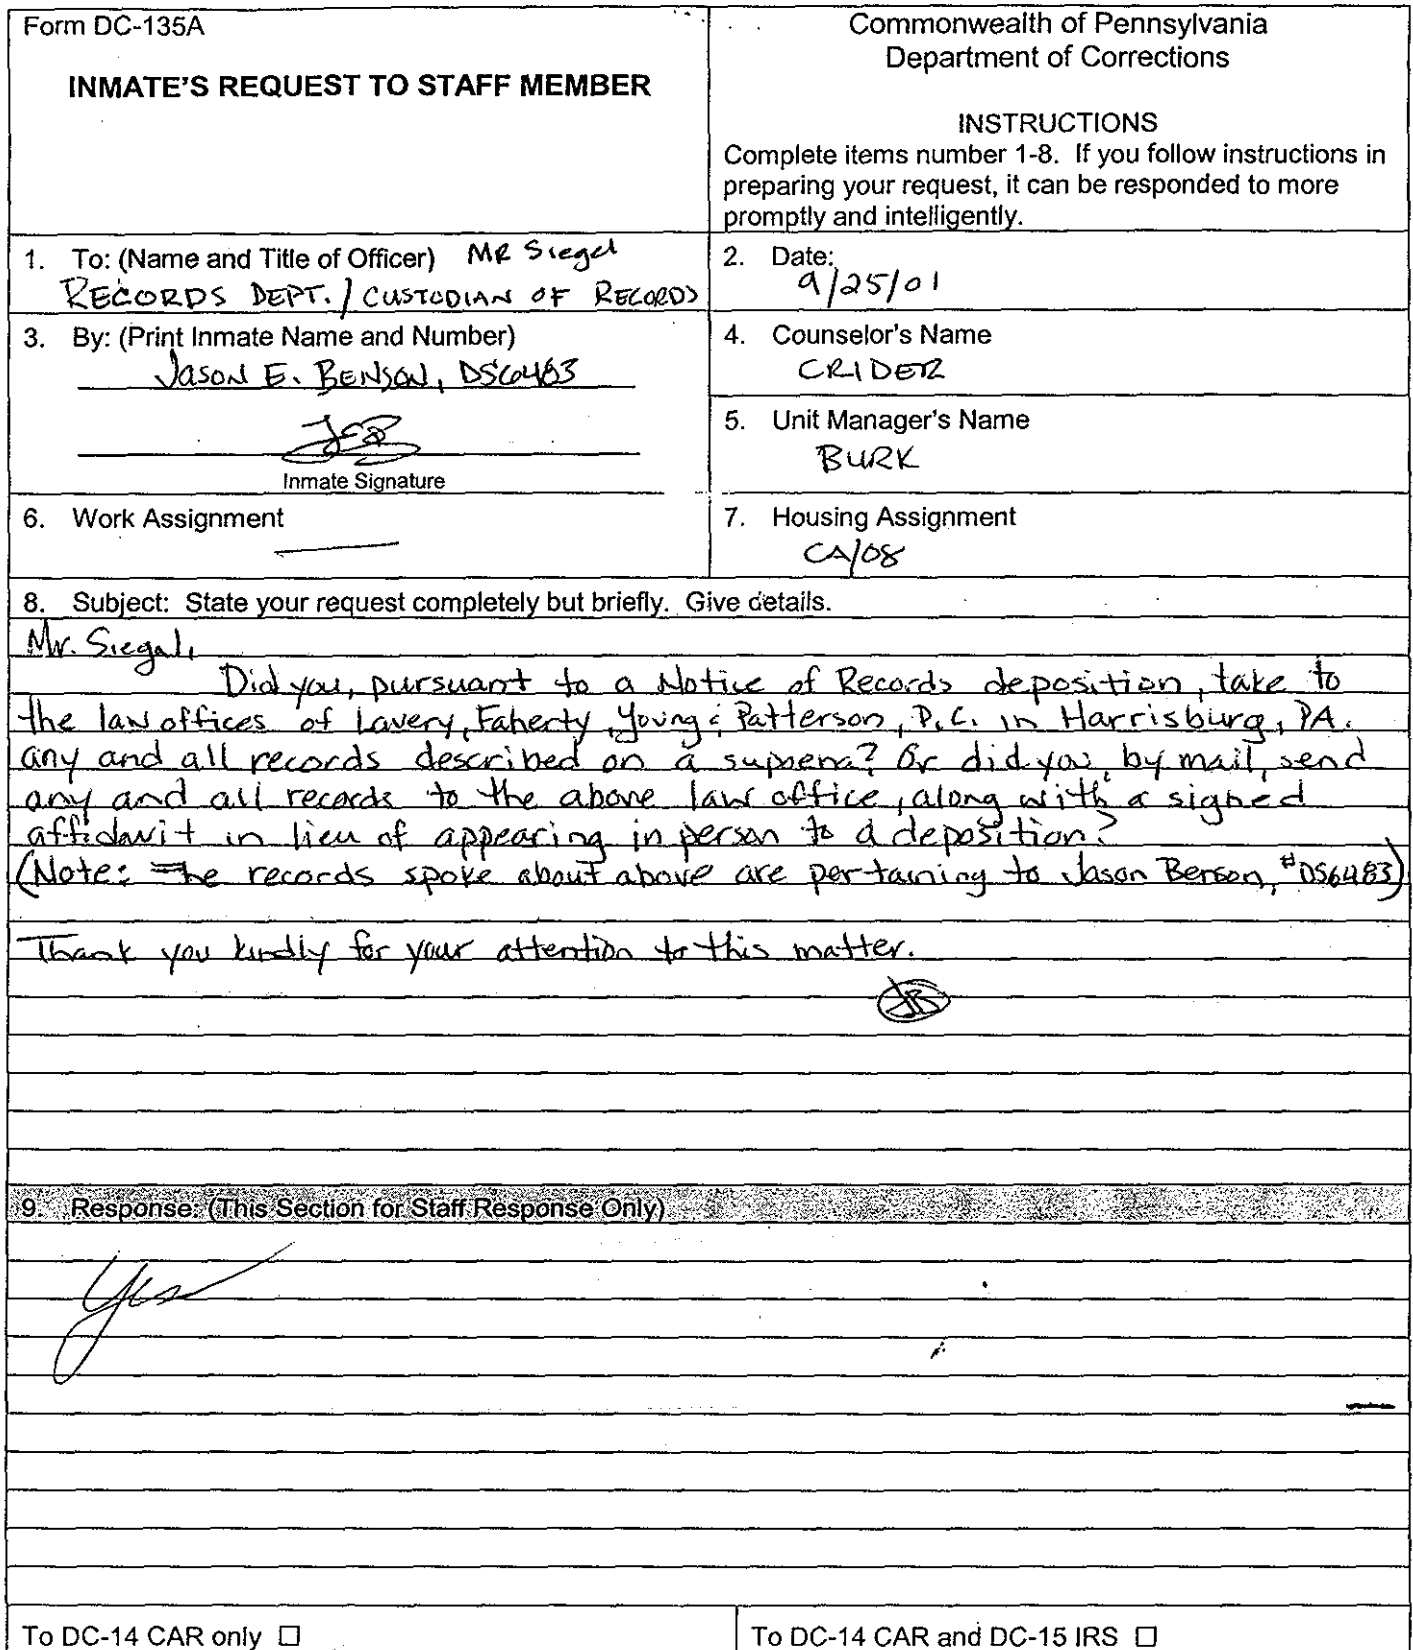 Form DC-135A
INMATE'S REQUEST TO STAFF MEMBER
Commonwealth of Pennsylvania
Department of Corrections
INSTRUCTIONS
Complete items number 1-8. If you follow instructions in
preparing your request, it can be responded to more
promptly and intelligently.
1. To: (Name and Title of Officer) MR Siegel
RECORDS DEPT. / CUSTODIAN OF RECORDS
2. Date:
9/25/01
3. By: (Print Inmate Name and Number)
JASON E. BENSON, DS6483
Inmate Signature
4. Counselor's Name
CRIDER
5. Unit Manager's Name
BURK
6. Work Assignment
7. Housing Assignment
CA/08
8. Subject: State your request completely but briefly. Give details.
Mr. Siegal,
Did you, pursuant to a Notice of Records deposition, take to
the law offices of Lavery, Faherty, Young & Patterson, P.C. in Harrisburg, PA.
any and all records described on a supoena? Or did you, by mail, send
any and all records to the above law office, along with a signed
affidavit in lieu of appearing in person to a deposition?
(Note: The records spoke about above are pertaining to Jason Benson, #DS6483)
Thank you kindly for your attention to this matter.
JB
9. Response: (This Section for Staff Response Only)
Yes
To DC-14 CAR only ☐
To DC-14 CAR and DC-15 IRS ☐